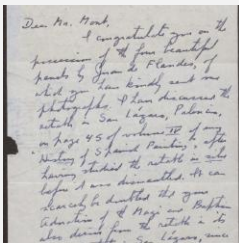 Dear Mr. Mont,
I congratulate you on the
possession of the four beautiful
panels by Juan de Flandes, of
which you have kindly sent me
photographs. I have discussed the
retable in San Lázaro, Palencia,
on page 45 of volume IV of my
History of Spanish Painting, after
having studied the retable in situ
before it was dismantled. It can
scarcely be doubted that your
Adoration of the Magi and Baptism
also derive from the retable in its
San Lázaro, since